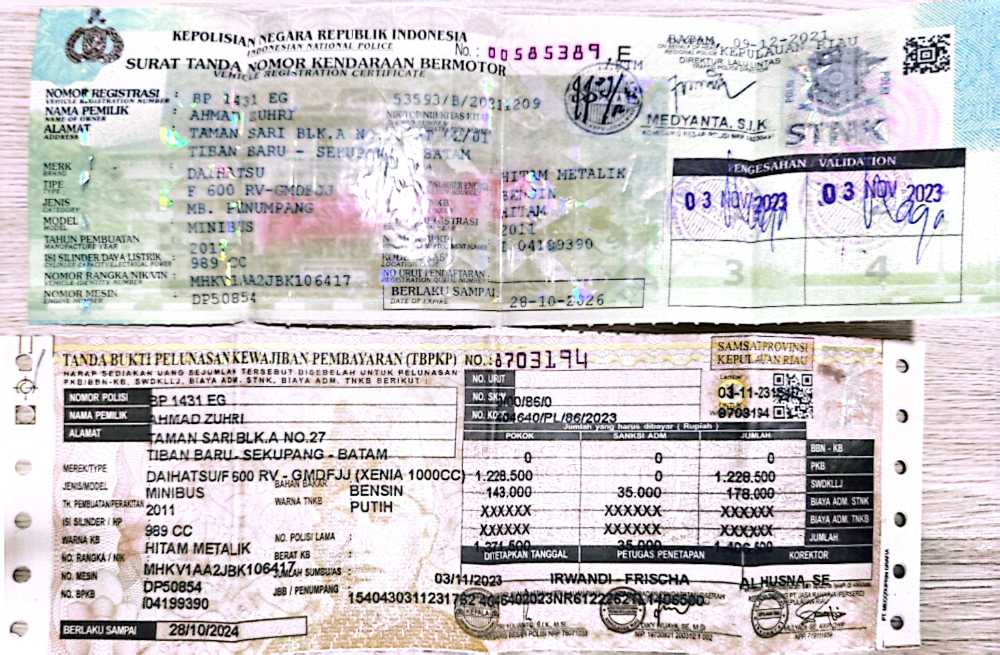 KEPOLISIAN NEGARA REPUBLIK INDONESIA
INDONESIAN NATIONAL POLICE
No. : 00585389 E
SURAT TANDA NOMOR KENDARAAN BERMOTOR
VEHICLE REGISTRATION CERTIFICATE
BATAM, 09-12-2021
KEPULAUAN RIAU
DIREKTUR LALU LINTAS
MEDYANTA, S.I.K
STNK
NOMOR REGISTRASI : BP 1431 EG 53593/B/2021.209
VEHICLE REGISTRATION NUMBER
NAMA PEMILIK : AHMAD ZUHRI
NAME OF OWNER
ALAMAT : TAMAN SARI BLK.A
ADDRESS
TIBAN BARU - BATAM
MERK : DAIHATSU HITAM METALIK
BRAND
TIPE : F 600 RV-GMDFJJ BENSIN
TYPE
JENIS : MB. PENUMPANG HITAM
CATEGORY
MODEL : MINIBUS 2011
MODEL
TAHUN PEMBUATAN : 04189390
MANUFACTURE YEAR
ISI SILINDER/DAYA LISTRIK : 989 CC
CYLINDER CAPACITY/ELECTRICAL POWER
NOMOR RANGKA/NIK/VIN : MHKV1AA2JBK106417
VEHICLE IDENTITY NUMBER
NO URUT PENDAFTARAN
NOMOR MESIN : DP50854
ENGINE NUMBER
BERLAKU SAMPAI 28-10-2026
DATE OF EXPIRE
PENGESAHAN / VALIDATION
03 NOV 2023 03 NOV 2023
3 4
TANDA BUKTI PELUNASAN KEWAJIBAN PEMBAYARAN (TBPKP) NO.: 8703194
HARAP SEDIAKAN UANG SEJUMLAH TERSEBUT DISEBELAH UNTUK PELUNASAN
PKB/BBN-KB, SWDKLLJ, BIAYA ADM. STNK, BIAYA ADM. TNKB BERIKUT :
SAMSAT PROVINSI
KEPULAUAN RIAU
NOMOR POLISI BP 1431 EG
NAMA PEMILIK AHMAD ZUHRI
ALAMAT TAMAN SARI BLK.A NO.27
TIBAN BARU- SEKUPANG - BATAM
NO. URUT
/00/86/0
04640/PL/86/2023
03-11-23
8703194
MERK/TYPE DAIHATSU/F 600 RV - GMDFJJ (XENIA 1000CC)
JENIS/MODEL MINIBUS
BAHAN BAKAR BENSIN
TH. PEMBUATAN/PERAKITAN 2011
WARNA TNKB PUTIH
ISI SILINDER / HP 989 CC
WARNA KB HITAM METALIK
NO. POLISI LAMA :
NO. RANGKA / NIK MHKV1AA2JBK106417
BERAT KB :
NO. MESIN DP50854
JUMLAH SUMBU/AS :
NO. BPKB I04199390
JBB / PENUMPANG :
BERLAKU SAMPAI 28/10/2024
Jumlah yang harus dibayar ( Rupiah )
POKOK SANKSI ADM JUMLAH
0 0 0 BBN - KB
1.228.500 0 1.228.500 PKB
143.000 35.000 178.000 SWDKLLJ
XXXXXX XXXXXX XXXXXX BIAYA ADM. STNK
XXXXXX XXXXXX XXXXXX BIAYA ADM. TNKB
35.000 JUMLAH
DITETAPKAN TANGGAL PETUGAS PENETAPAN KOREKTOR
03/11/2023 IRWANDI - FRISCHA ALHUSNA, SE